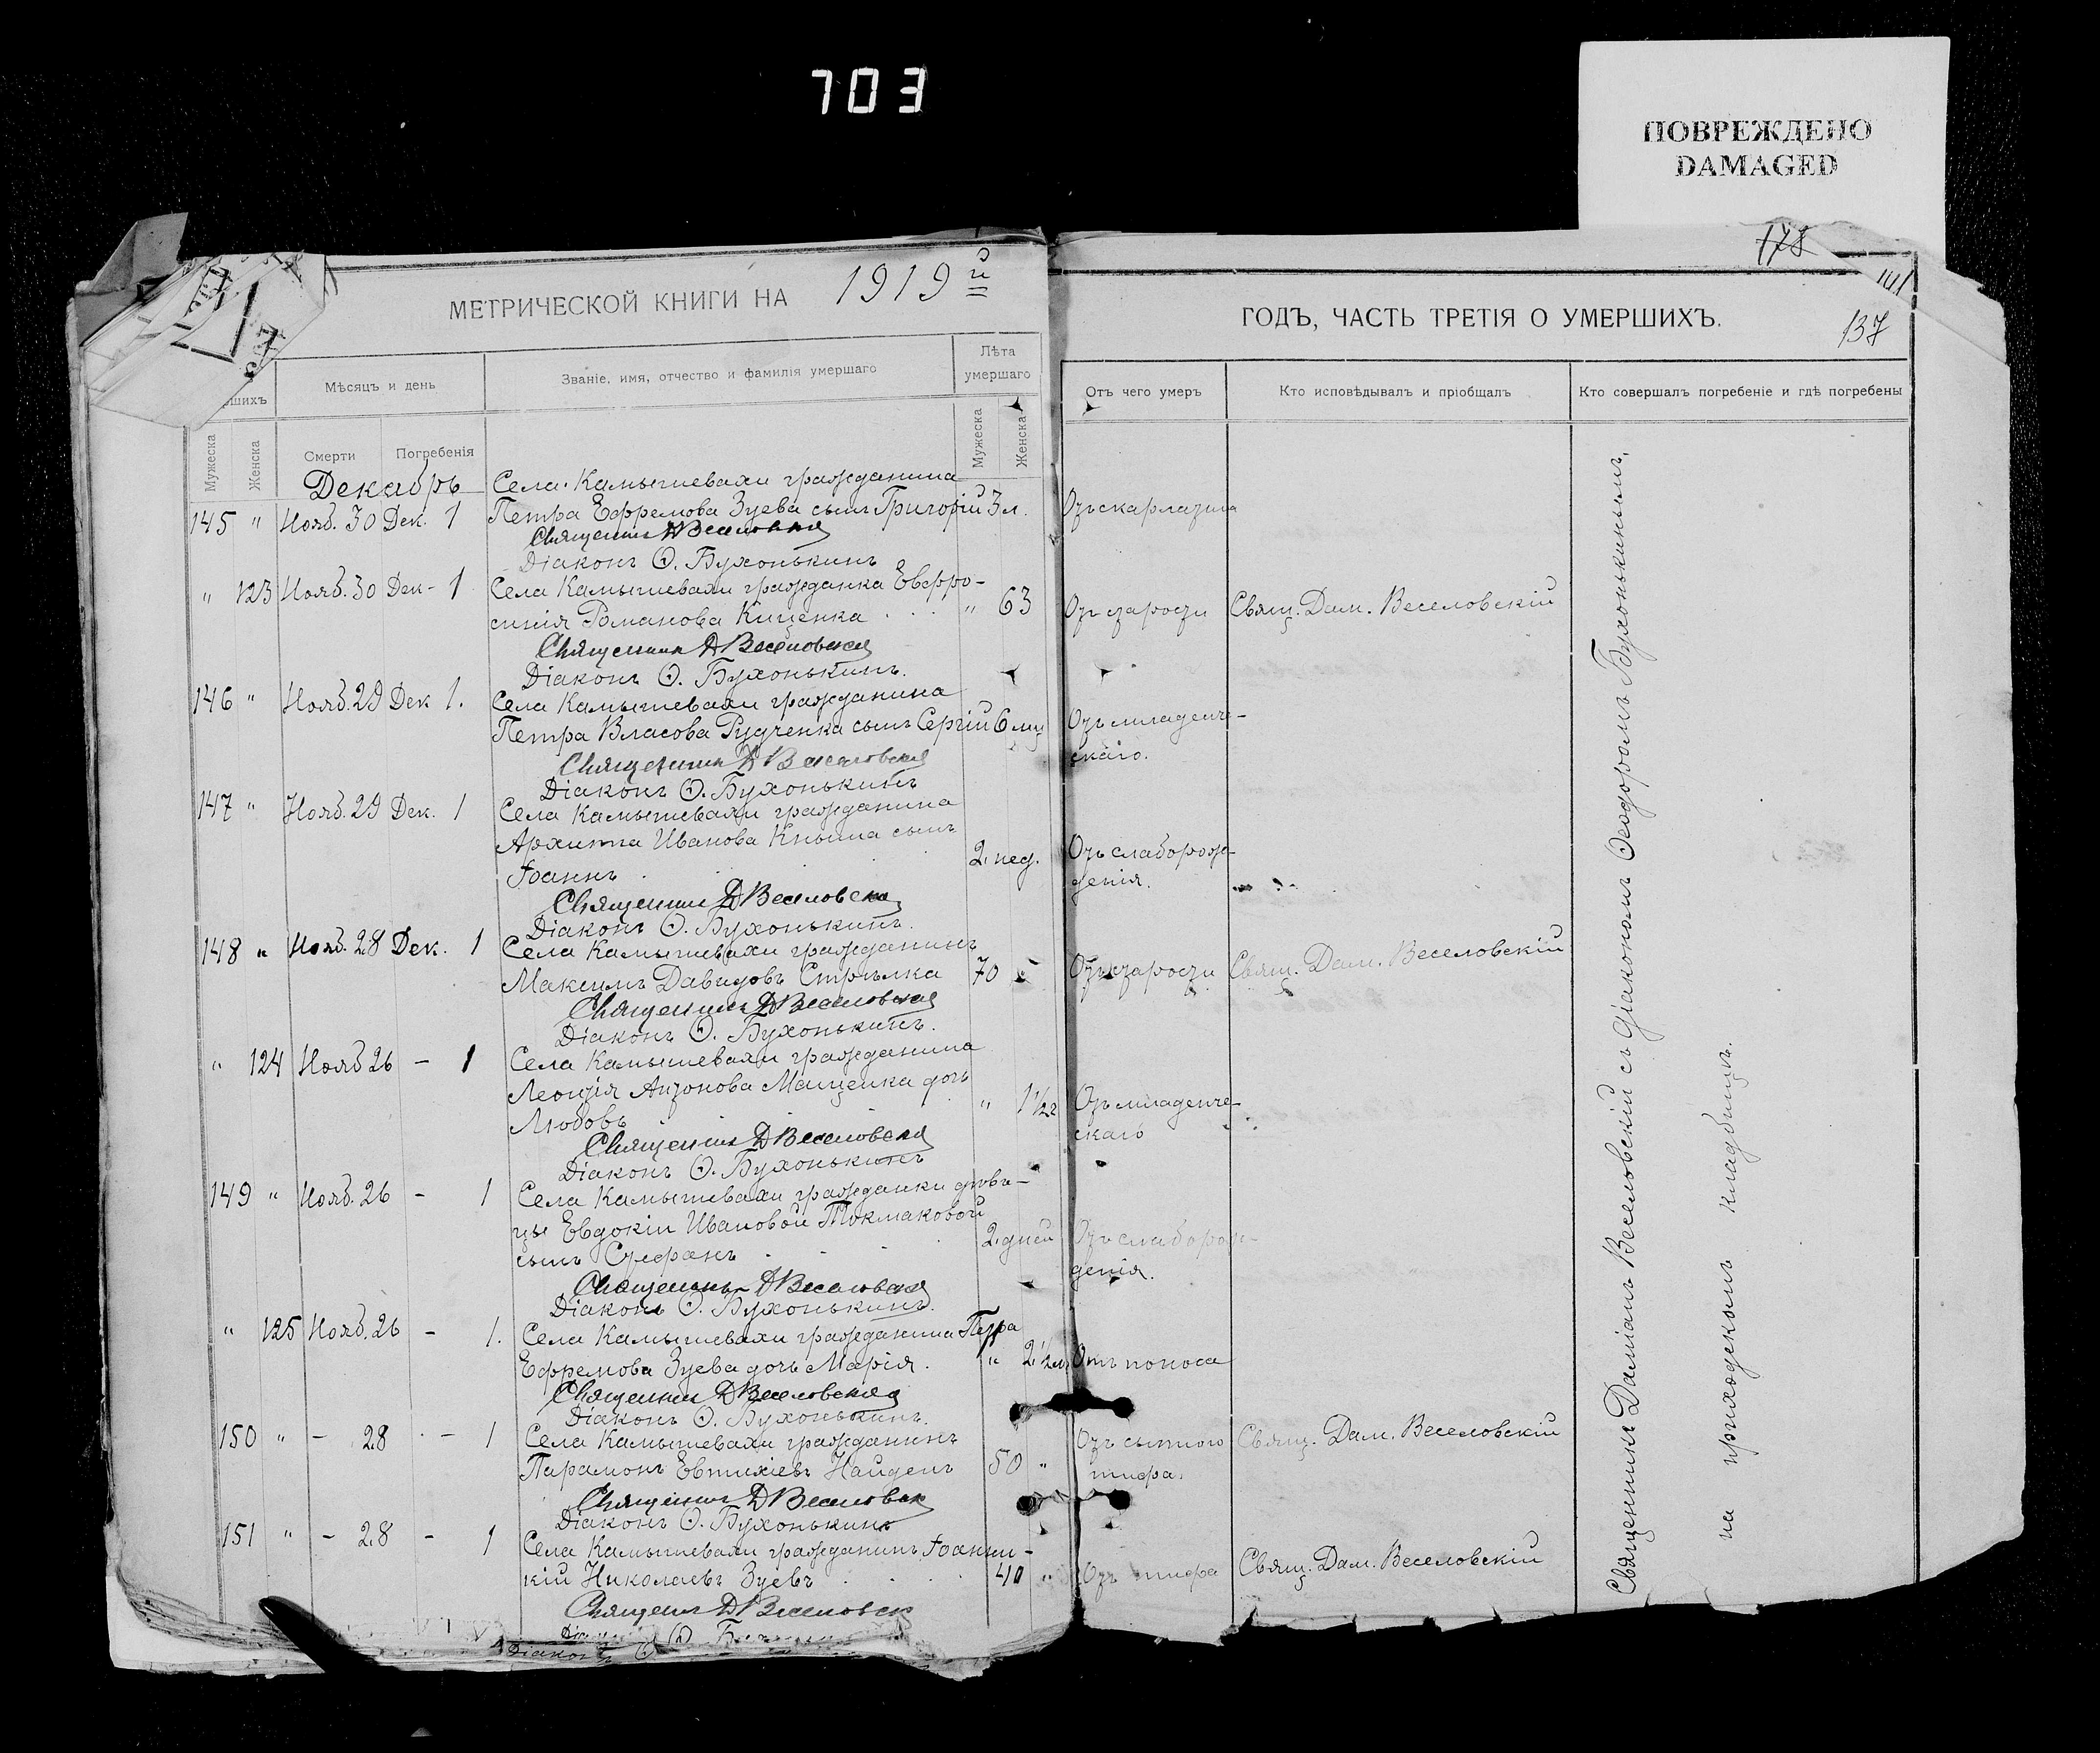 703
ПОВРЕЖДЕНО
DAMAGED
178
141
137
МЕТРИЧЕСКОЙ КНИГИ НА 1919й
ГОДЪ, ЧАСТЬ ТРЕТІЯ О УМЕРШИХЪ.
Мѣсяцъ и день
Званіе, имя, отчество и фамилія умершаго
Лѣта умершаго
Отъ чего умеръ
Кто исповѣдывалъ и пріобщалъ
Кто совершалъ погребеніе и гдѣ погребены
Мужеска
Женска
Смерти
Погребенія
Мужеска
Женска
Декабрь
Села Камышевахи гражданина
145 " Нояб. 30 Дек. 1 Петра Ефремова Зуева сынъ Григорій 3 л. Отъ скарлатина
Священникъ Д Веселовскій
Діаконъ Ѳ. Бухонькинъ
" 123 Нояб. 30 Дек - 1 Села Камышевахи гражданка Евфро-
синія Романова Киценка " 63 Отъ старости Свящ. Дам. Веселовскій
Священникъ Д Веселовскій
Діаконъ Ѳ. Бухонькинъ.
146 " Нояб. 29 Дек 1. Села Камышевахи гражданина
Петра Власова Рудченка сынъ Сергій 6 мц Отъ младенче-
скаго.
Священникъ Д Веселовскій
Діаконъ Ѳ. Бухонькинъ
147 " Нояб. 29 Дек. 1 Села Камышевахи гражданина
Архиппа Иванова Кныша сынъ
Іоаннъ 2. нед. Отъ слаборож-
денія.
Священникъ Д Веселовск
Діаконъ Ѳ. Бухонькинъ.
148 " Нояб. 28 Дек. 1 Села Камышевахи гражданинъ
Максимъ Давидовъ Стрѣлка 70 Отъ старости Свящ. Дам. Веселовскій
Священникъ Д Веселовскій
Діаконъ Ѳ. Бухонькинъ.
" 124 Нояб 26 - 1 Села Камышевахи гражданина
Леонтія Антонова Маценка дочь
Любовь " 1 1/2 г Отъ младенче-
скаго
Священникъ Д Веселовскій
Діаконъ Ѳ. Бухонькинъ
149 " Нояб. 26 - 1 Села Камышевахи гражданки дѣви-
цы Евдокіи Ивановой Токмаковой
сынъ Стефанъ 2. дней Отъ слаборож-
денія.
Священникъ Д Веселовскій
Діаконъ Ѳ. Бухонькинъ.
" 125 Нояб. 26 - 1. Села Камышевахи гражданина Петра
Ефремова Зуева дочь Марія. " 2 1/2 Отъ поноса
Священникъ Д Веселовскій
Діаконъ Ѳ. Бухонькинъ.
150 " - 28 - 1 Села Камышевахи гражданинъ
Парамонъ Евтихіевъ Найденъ 50 " Отъ сыпного
тифа. Свящ. Дам. Веселовскій
Священникъ Д Веселовск
Діаконъ Ѳ. Бухонькинъ
151 " - 28 - 1 Села Камышевахи гражданинъ Іоанни-
кій Николаевъ Зуевъ 40 " Отъ тифа Свящ. Дам. Веселовскій
Священ Д Веселовск
Діаконъ Ѳ
Священникъ Даміанъ Веселовскій съ діакономъ Ѳеодоромъ Бухонькинымъ,
на приходскомъ кладбищѣ.